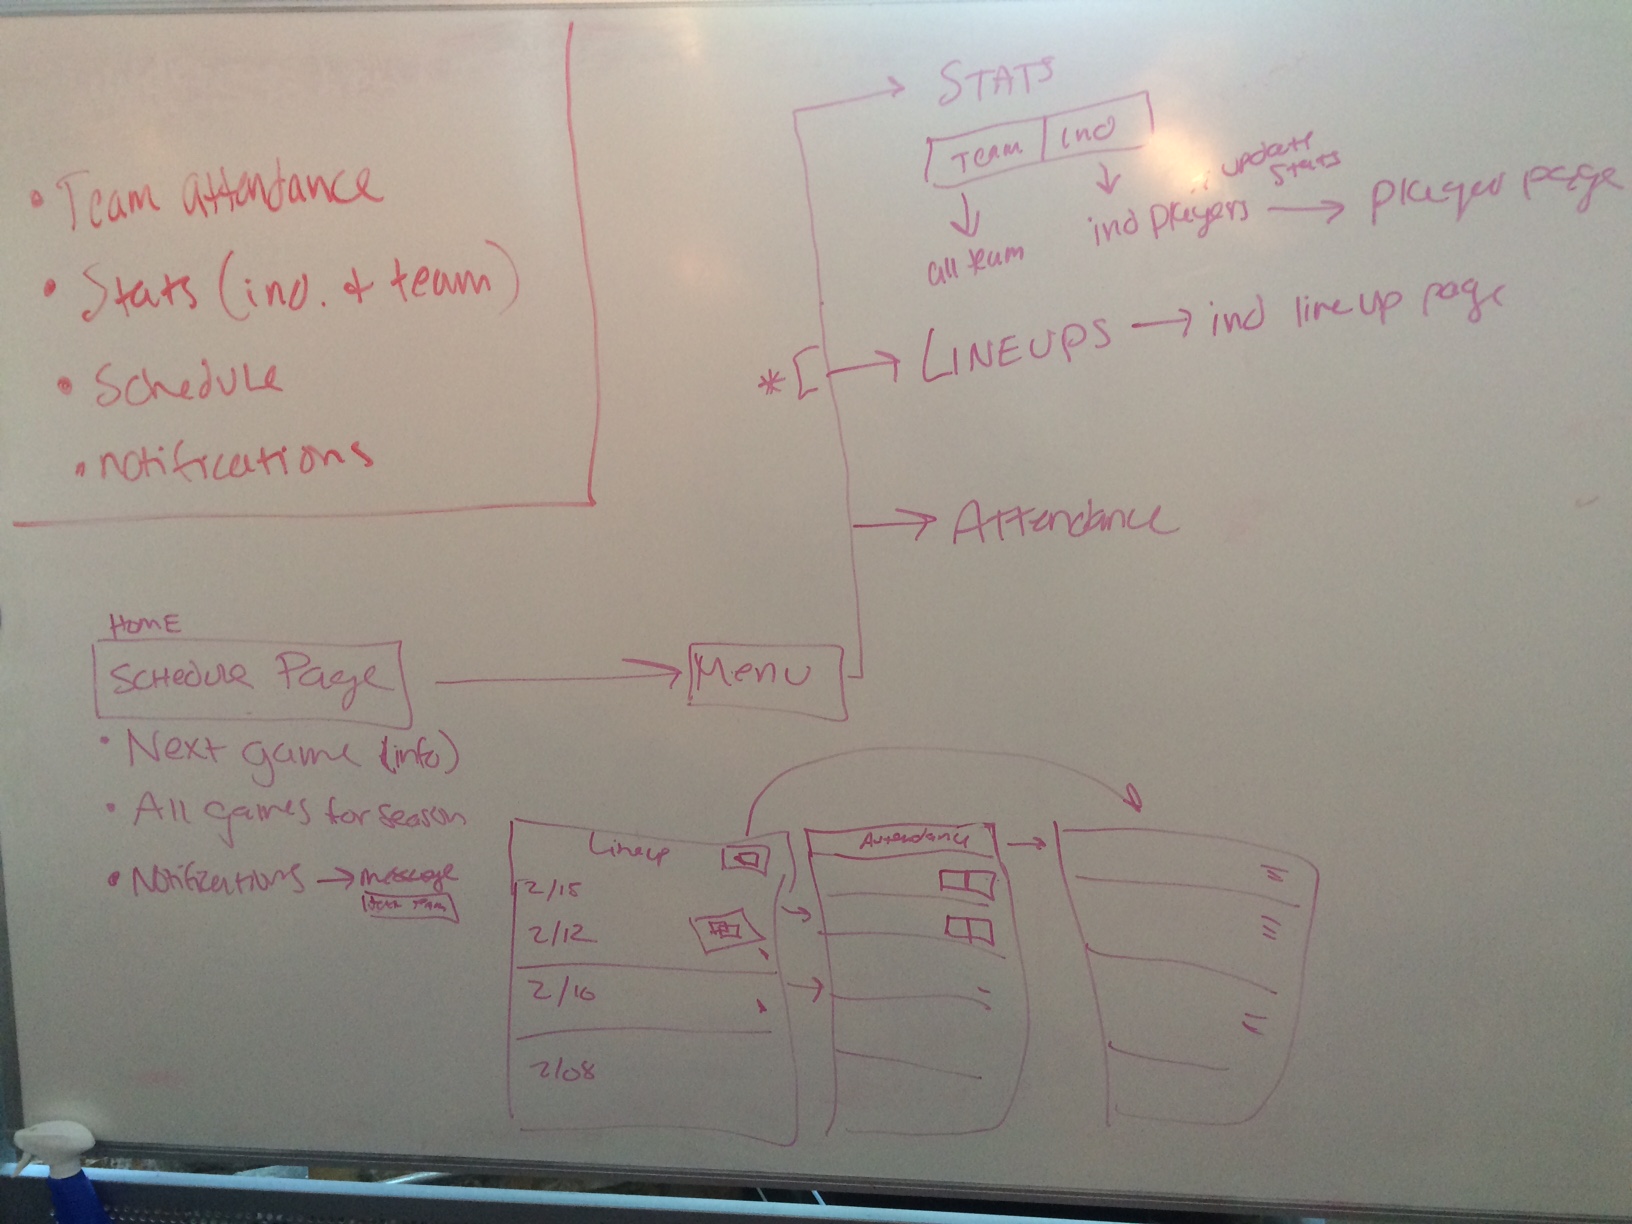 • Team attendance
• Stats (ind. & team)
• Schedule
• notifications
STATS
Team | ind
update stats
all team
ind players → player page
* [ → LINEUPS → ind lineup page
→ Attendance
HOME
Schedule Page → Menu
• Next game (info)
• All games for season
• Notifications → message
Lineup
2/15
2/12
2/10
2/08
Attendance